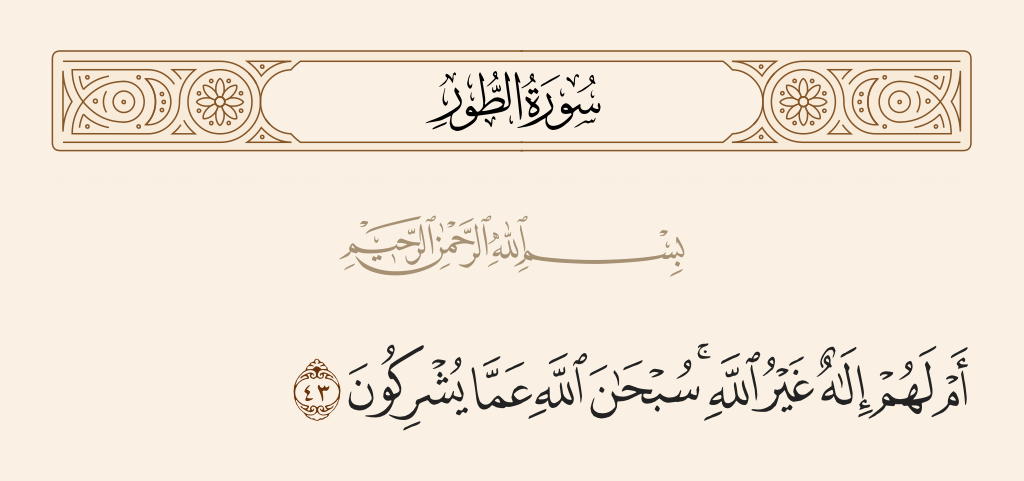 سُورَةُ الطُّورِ
بِسْمِ ٱللَّهِ ٱلرَّحْمَٰنِ ٱلرَّحِيمِ
أَمْ لَهُمْ إِلَٰهٌ غَيْرُ ٱللَّهِ ۚ سُبْحَٰنَ ٱللَّهِ عَمَّا يُشْرِكُونَ ٤٣